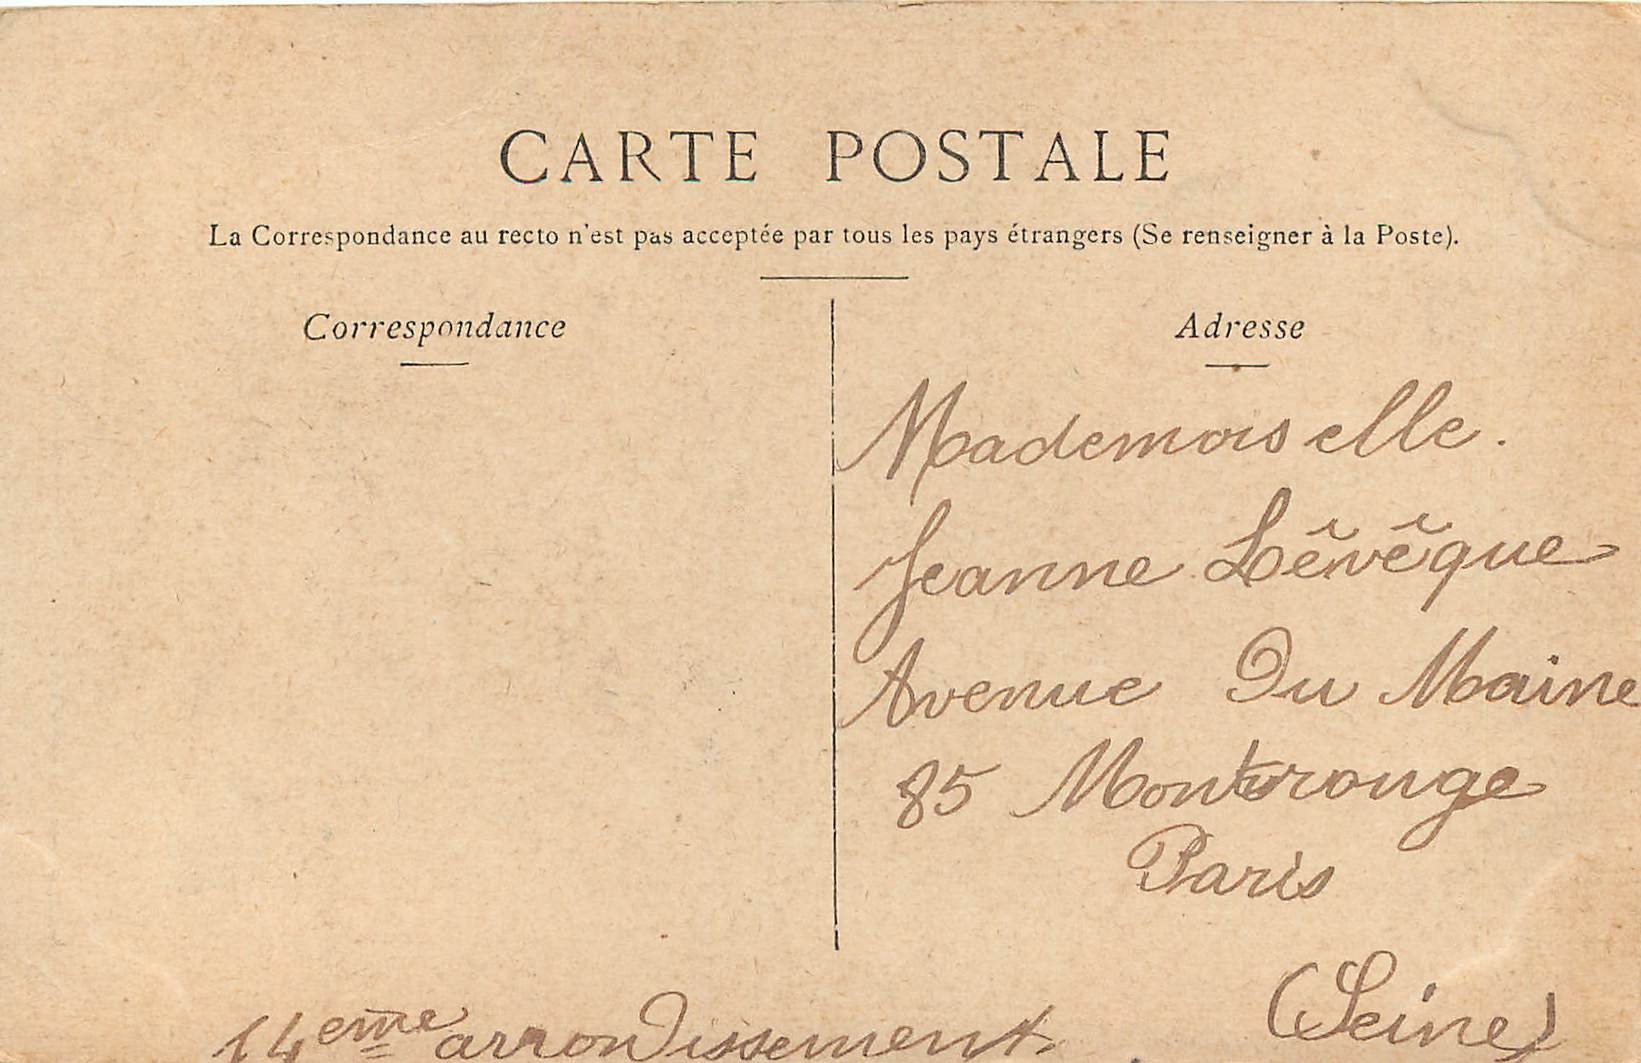 CARTE POSTALE
La Correspondance au recto n'est pas acceptée par tous les pays étrangers (Se renseigner à la Poste).
Correspondance
Adresse
Mademoiselle.
Jeanne Lêvêque
Avenue Du Maine
85 Montrouge
Paris
(Seine)
14eme arrondissement.